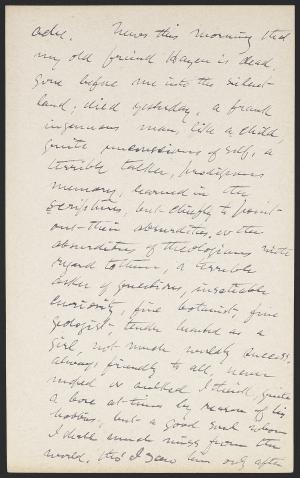 News this morning that
my old friend Hagen is dead,
gone before me into the silent
land; died yesterday, a frank
ingenuous man, like a child,
quite unconscious of self, a
terrible talker, prodigious
memory, learned in the
scriptures, but chiefly to point
out their absurdities, or the
absurdities of theologians with
regard to them, a terrible
asker of questions, insatiable
curiosity, fine botanist, fine
geologist, tender hearted as a
girl, not much worldly success,
always friendly to all, never
moped or sulked I think, quite
a bore at times by reason of his
hobbies, but a good soul whom
I shall much miss from the
world, tho' I saw him only after